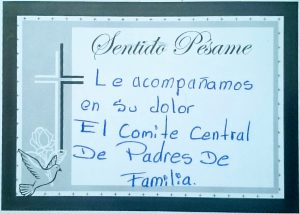 Sentido Pésame
Le acompañamos
en su dolor
El Comite Central
De Padres De
Familia.